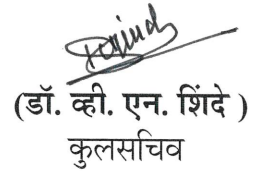 (डॉ. व्ही. एन. शिंदे )
कुलसचिव